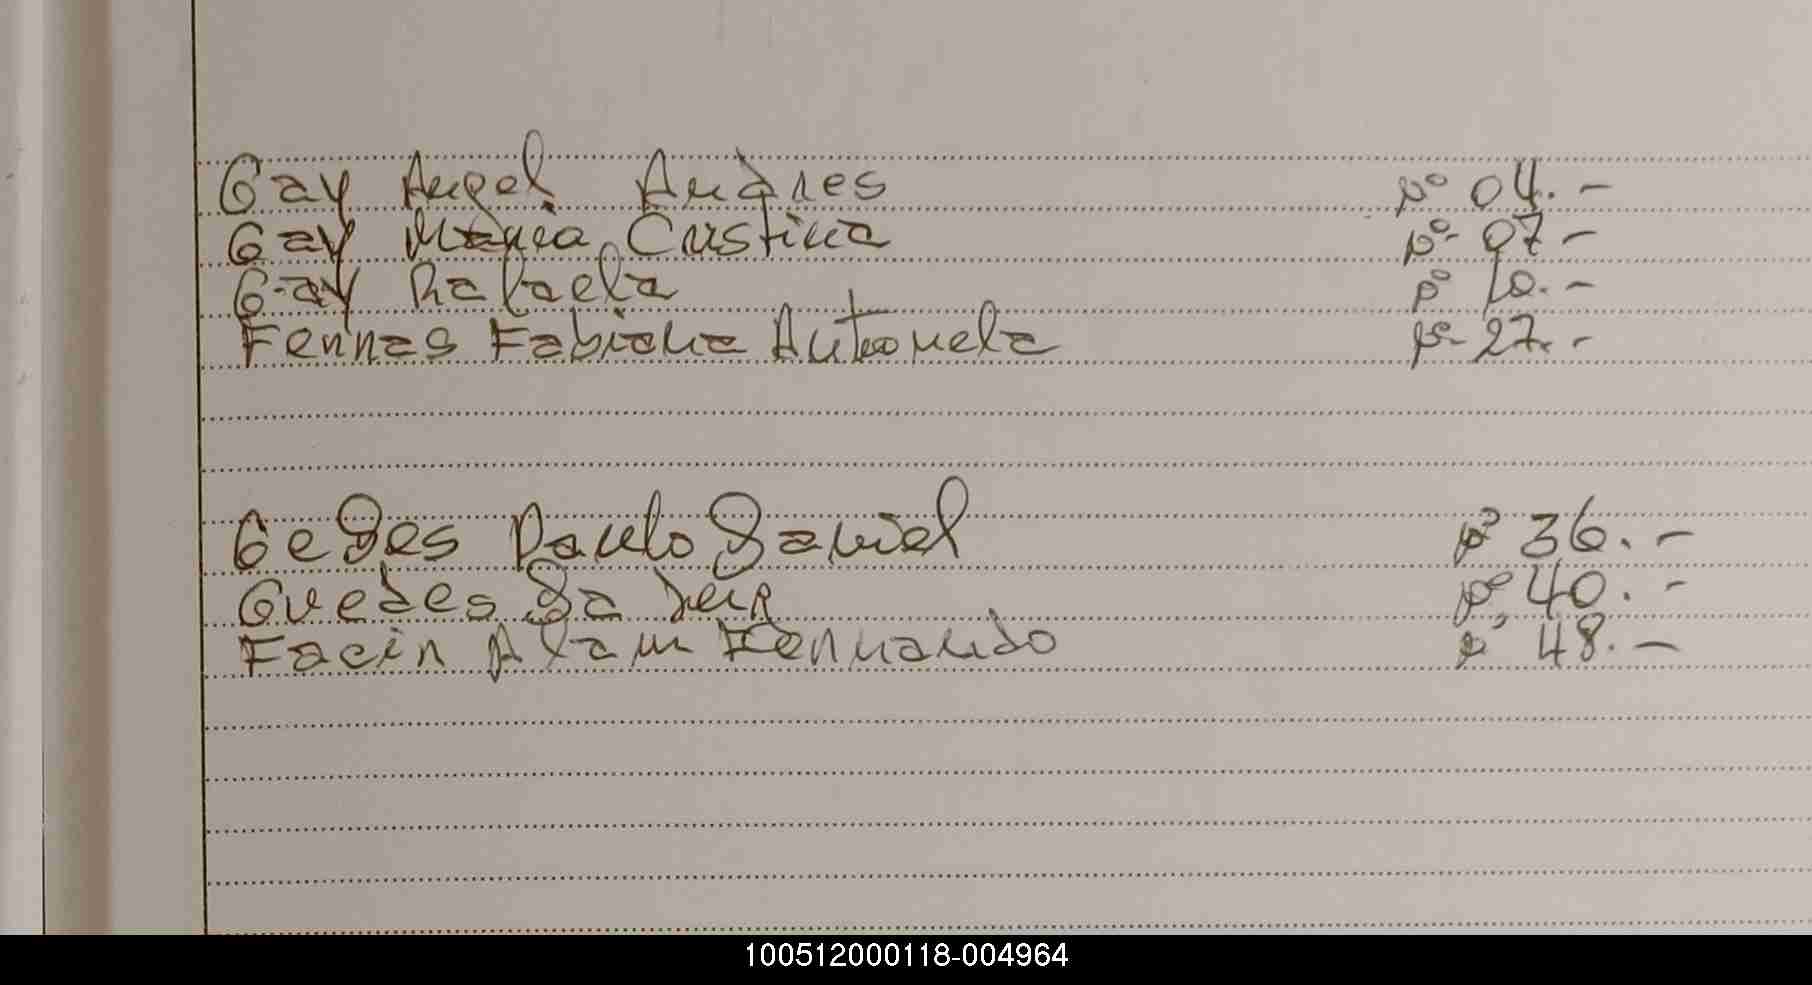 Gay Angel Andres Nº 04.-
Gay Maria Cristina Nº 07-
Gay Rafaela Nº 10.-
Ferras Fabiana Antonela Nº 27.-
Gedes Paulo Daniel Nº 36.-
Guedes Da Nº 40.-
Facin Alam Fernando Nº 48.-
100512000118-004964